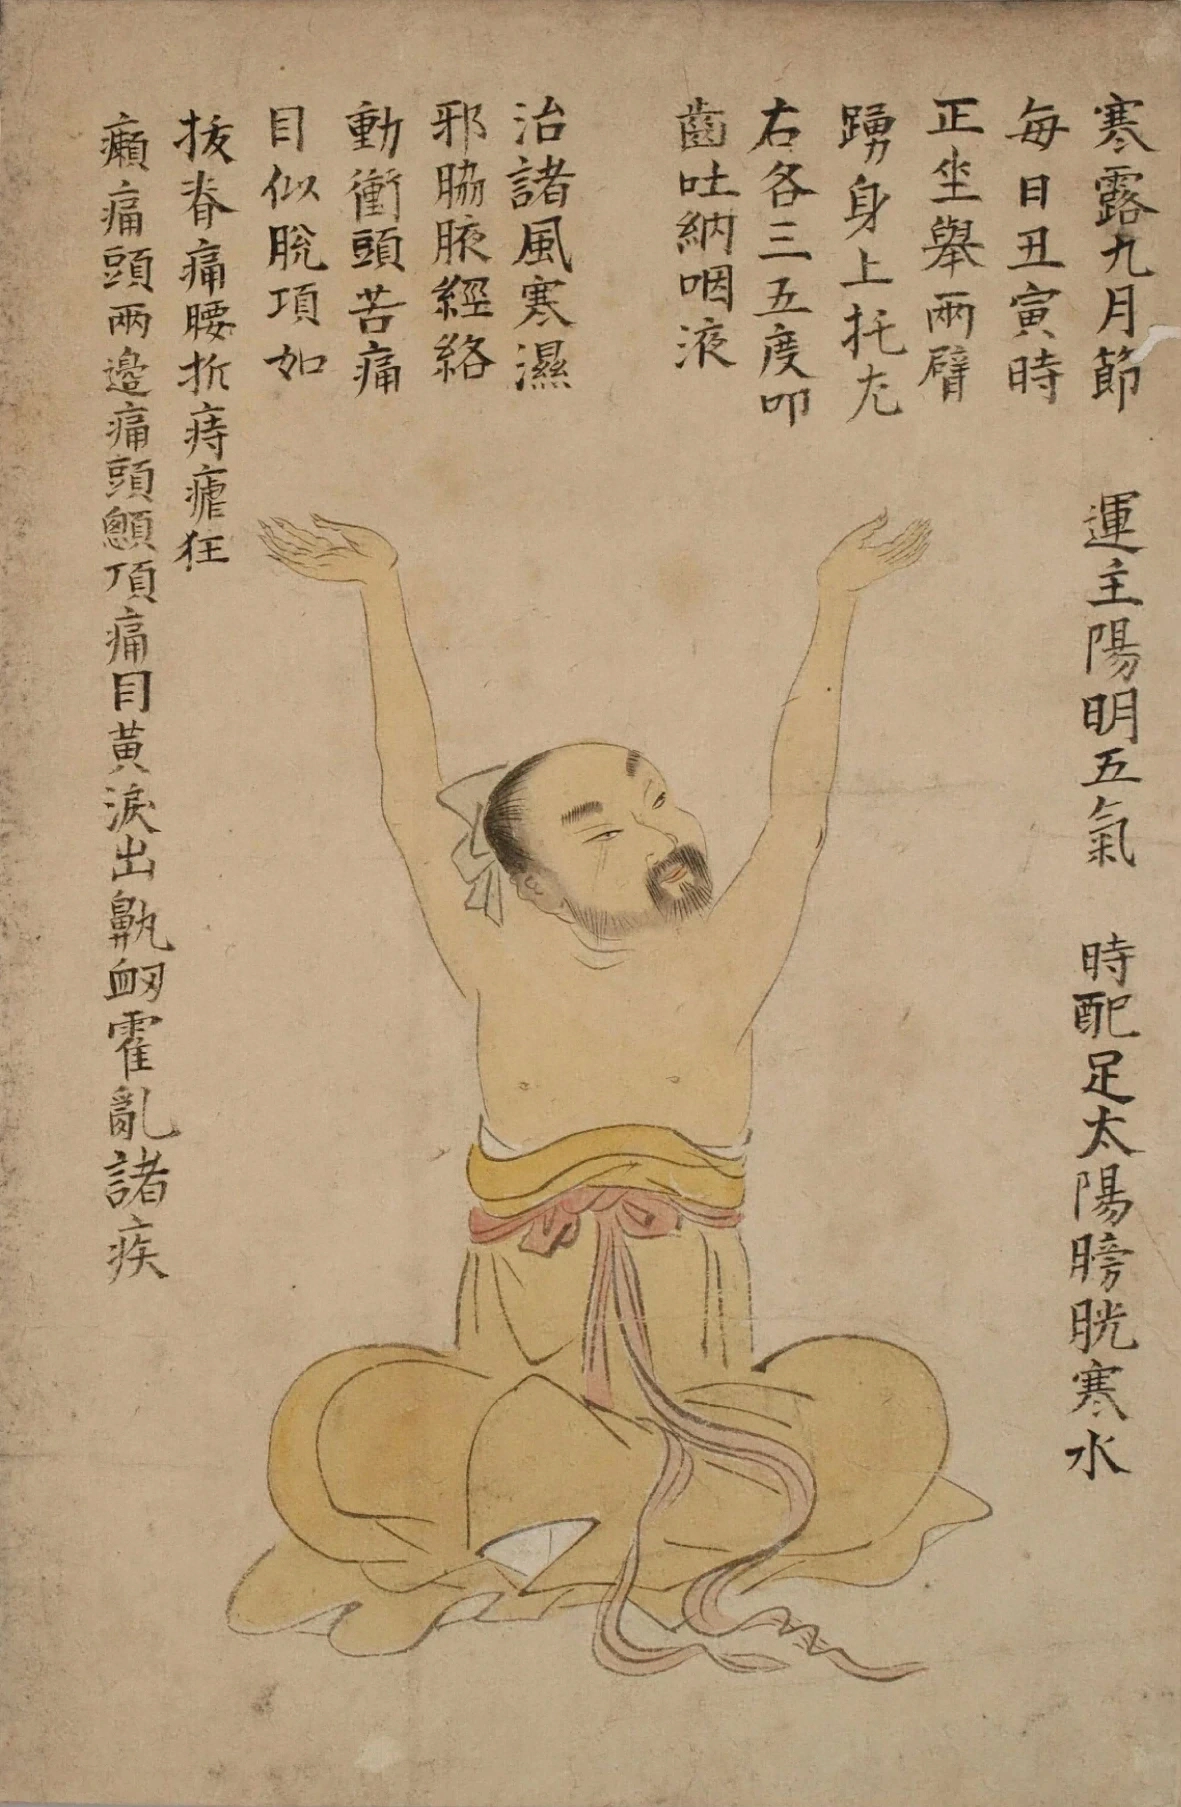 寒露九月節
運主陽明五氣
時配足太陽膀胱寒水
每日丑寅時
正坐舉兩臂
踴身上托左
右各三五度叩
齒吐納咽液
治諸風寒濕
邪脇腋經絡
動衝頭苦痛
目似脫項如
拔脊痛腰折痔瘧狂
癲痛頭兩邊痛頭顖頂痛目黃淚出鼽衂霍亂諸疾